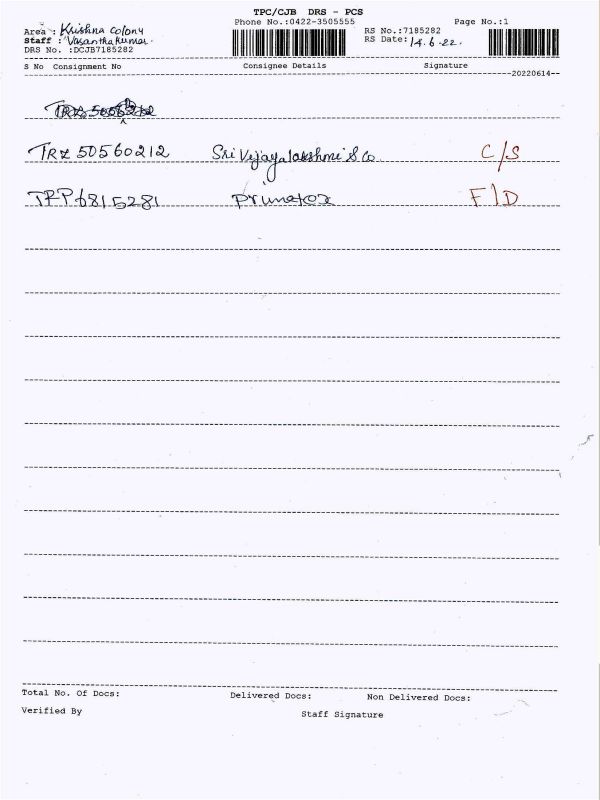 TPC/CJB DRS - PCS
Phone No.:0422-3505555 Page No.:1
Area : Krishna Colony RS No.:7185282
Staff : Vasanthakumar. RS Date: 14.6.22.
DRS No. :DCJB7185282
S No Consignment No Consignee Details Signature
20220614
TRZ 50560212 Sri Vijayalakshmi & Co C/S
TRP6815281 F/D
Total No. Of Docs: Delivered Docs: Non Delivered Docs:
Verified By Staff Signature